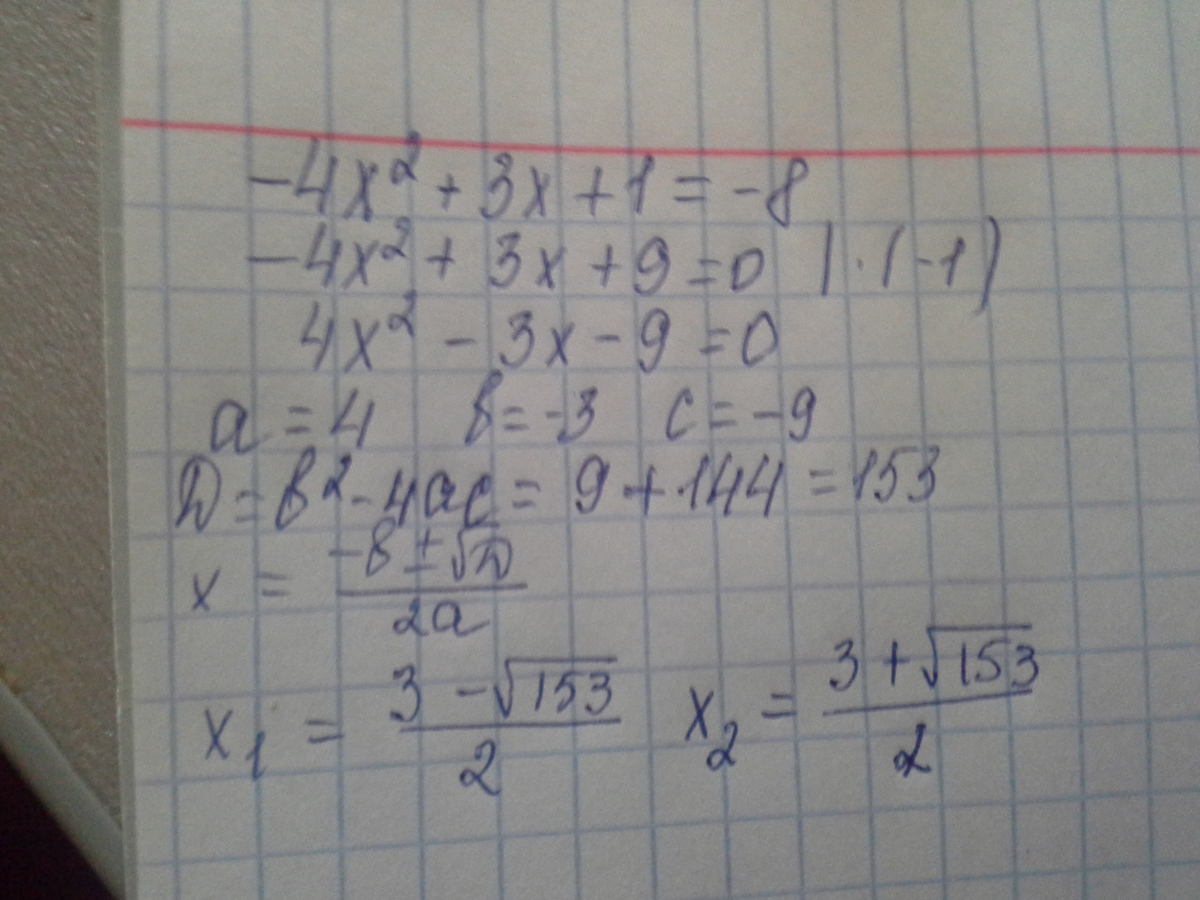 -4x² + 3x + 1 = -8
-4x² + 3x + 9 = 0 | · (-1)
4x² - 3x - 9 = 0
a = 4 b = -3 c = -9
D = b² - 4ac = 9 + 144 = 153
x = (-b ± √D)/(2a)
x₁ = (3 - √153)/2 x₂ = (3 + √153)/2